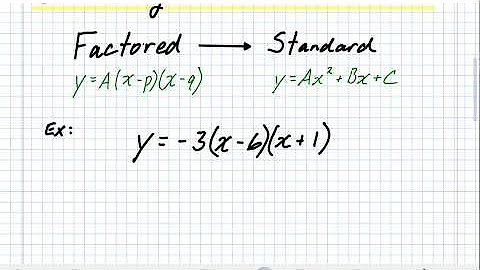 Factored → Standard
y=A(x-p)(x-q) y=Ax²+Bx+C
Ex: y=-3(x-6)(x+1)